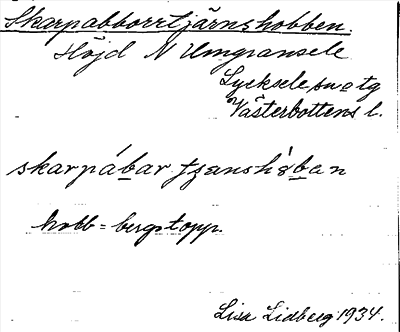 Skarpabborrtjärnshobben.
Höjd N Umgransele
Lycksele sn o tg
Västerbottens l.
skarpábar tʒænshɔ̀ban
hobb = bergstopp.
Lisa Lidberg 1934.